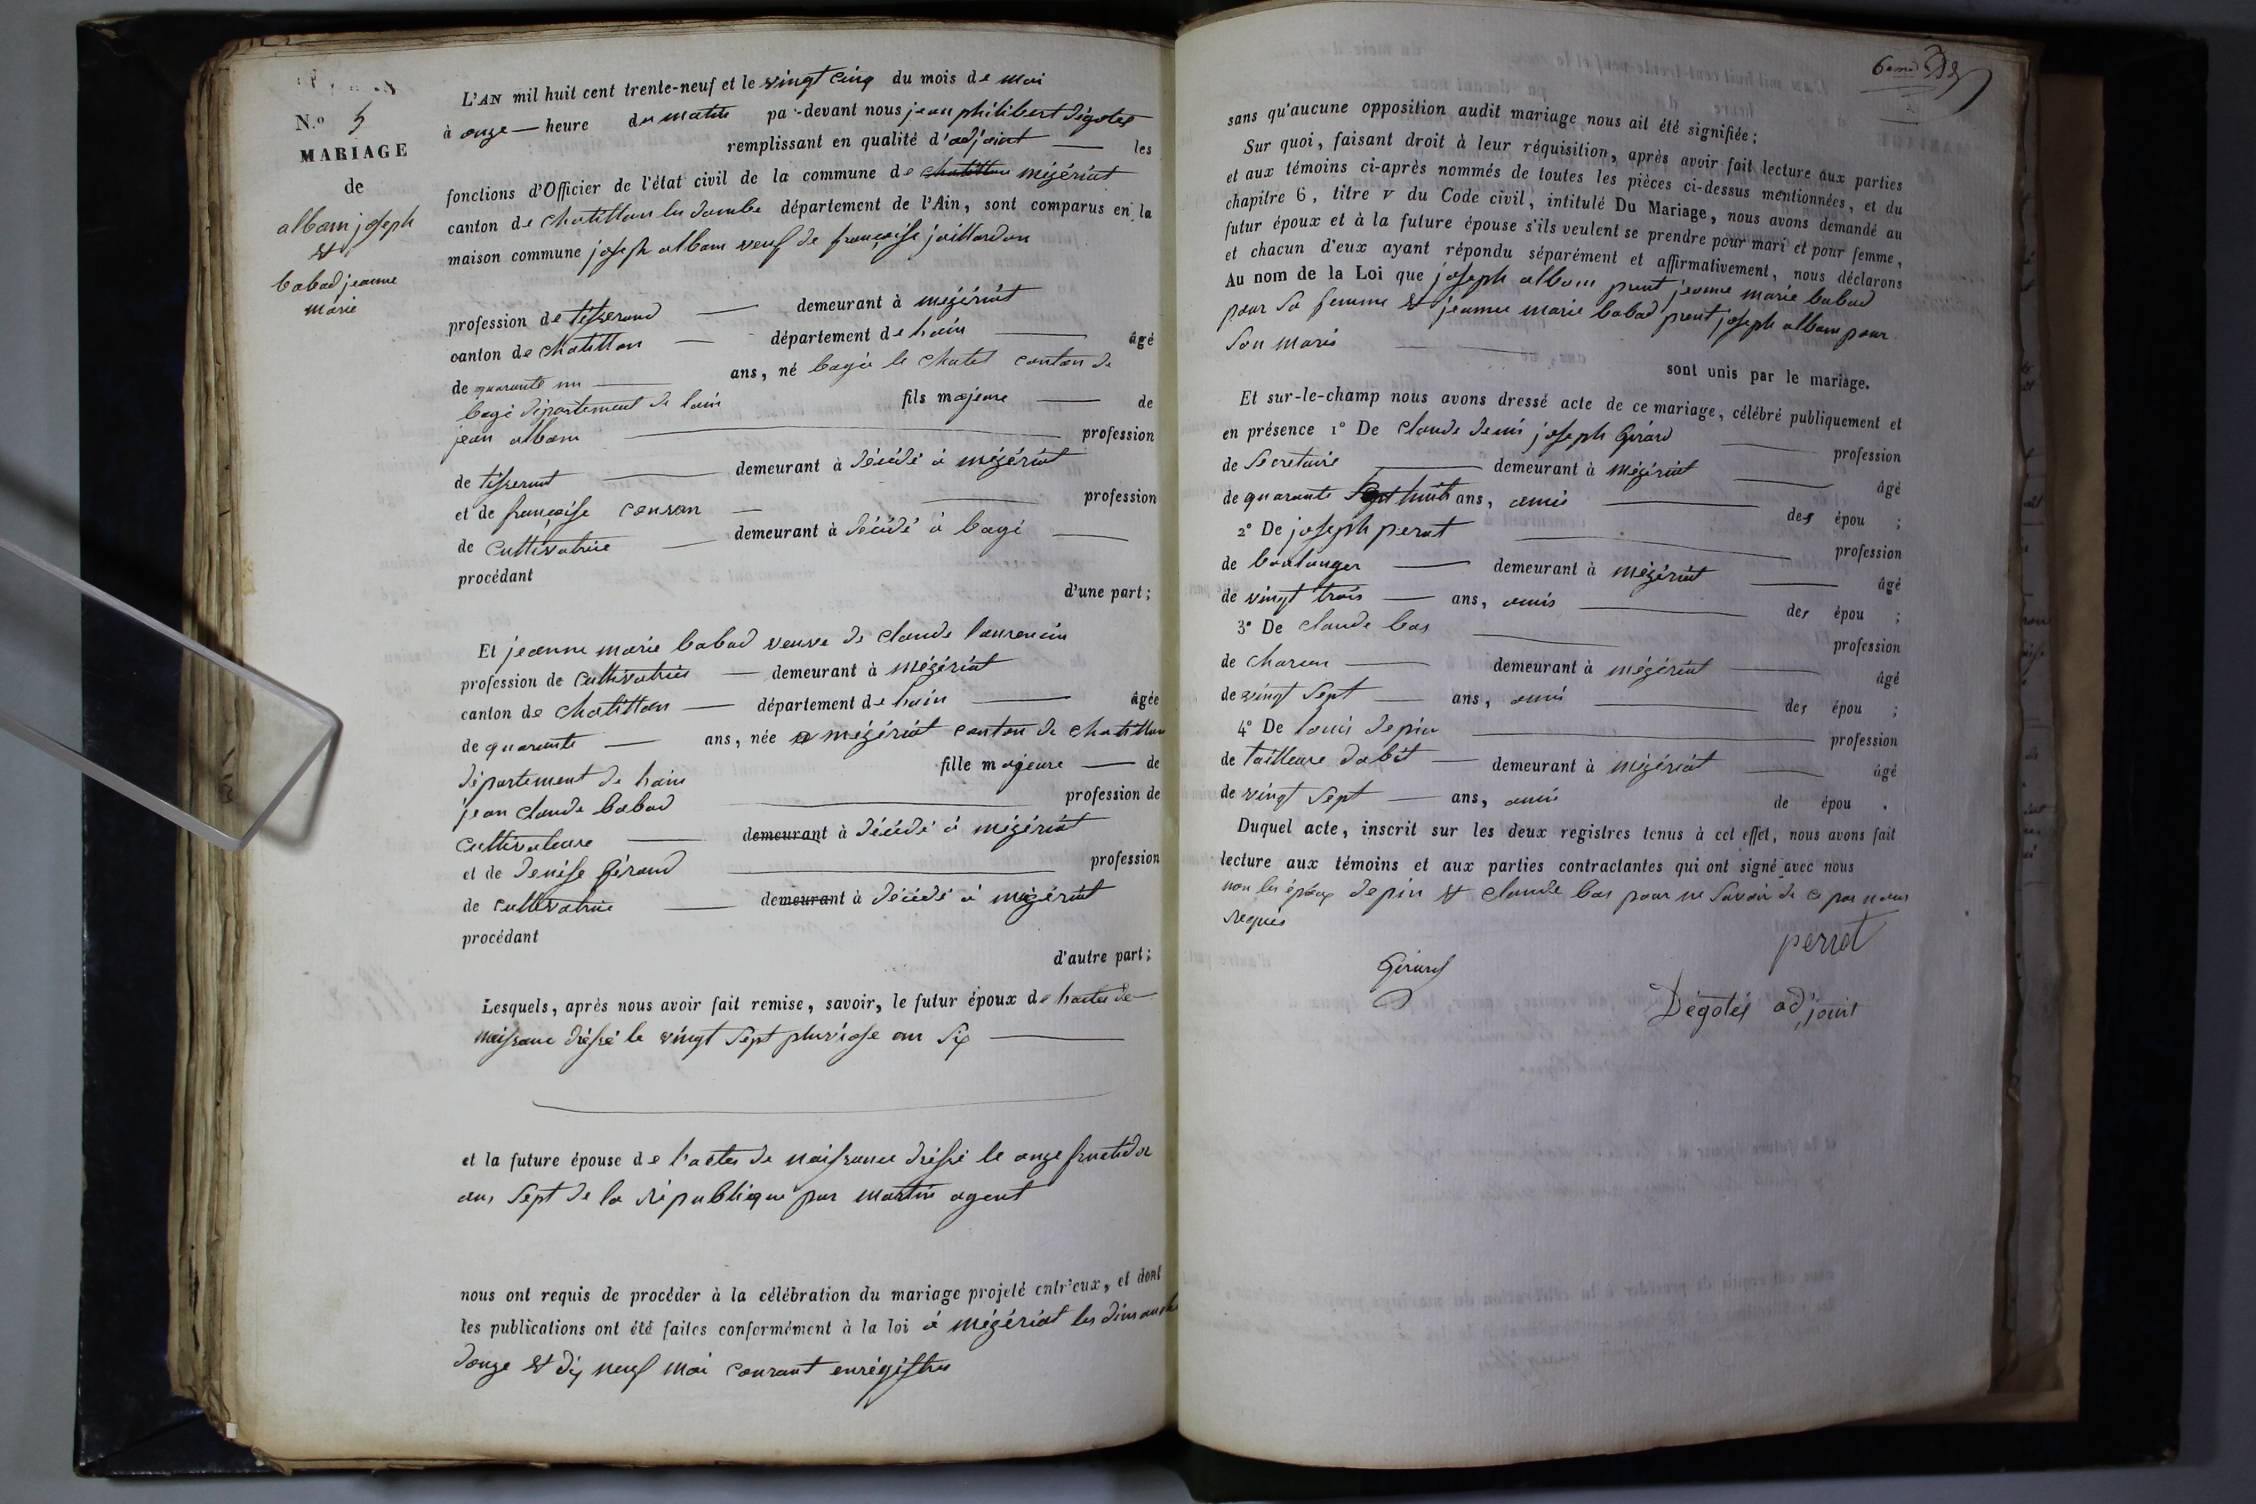 N.º 5
MARIAGE
de
albam joseph
et
babad jeanne
marie
L'AN mil huit cent trente-neuf et le vingt cinq du mois de mai
à onze — heure du matin pa -devant nous jean philibert Dégotes
remplissant en qualité d'adjoint — les
fonctions d'Officier de l'état civil de la commune de chatillon mézériat
canton de chatillon les dombe département de l'Ain, sont comparus en la
maison commune joseph albam veuf de françoise jaillardon
profession de tisserand — demeurant à mézériat
canton de chatillon — département de hain — âgé
de quarante un — ans, né bagée le chatel canton de
bagé département de lain fils majeure — de
jean albam — profession
de tisserant — demeurant à décédé à mézériat
et de françoise conron — profession
de cultivatrice — demeurant à décédé à bagé —
procédant
d'une part;
Et jeanne marie babad veuve de claude laurencin
profession de cultivatrice — demeurant à mézériat
canton de chatillon — département de hain — âgée
de quarante — ans, née a mézériat canton de chatillon
département de hain fille majeure — de
jean claude babad — profession de
cultivateure — demeurant à décédé à mézériat
et de denise Géraud — profession
de cultivatrice — demeurant à décédé à mézériat
procédant
d'autre part;
Lesquels, après nous avoir fait remise, savoir, le futur époux de hactes de
naissance drésé le vingt sept pluviose an six —
et la future épouse de l'actes de naissance drésé le onze fructidor
ans sept de la république par martin agent
nous ont requis de procéder à la célébration du mariage projeté entr'eux, et dont
les publications ont été faites conformément à la loi à mézériat les dimanche
douze et dix neuf mai courant enrégistres
6eme
sans qu'aucune opposition audit mariage nous ait été signifiée;
Sur quoi, faisant droit à leur réquisition, après avoir fait lecture aux parties
et aux témoins ci-après nommés de toutes les pièces ci-dessus mentionnées, et du
chapitre 6, titre v du Code civil, intitulé Du Mariage, nous avons demandé au
futur époux et à la future épouse s'ils veulent se prendre pour mari et pour femme,
et chacun d'eux ayant répondu séparément et affirmativement, nous déclarons
Au nom de la Loi que joseph albam prent jeanne marie babad
pour sa femme et jeanne marie babad prent joseph albam pour
son maris
sont unis par le mariage.
Et sur-le-champ nous avons dressé acte de ce mariage, célébré publiquement et
en présence 1º De claude denis joseph Girard — profession
de secretaire — demeurant à mézériat — âgé
de quarante sept huit ans, amis — des épou ;
2º De joseph perrat — profession
de boulanger — demeurant à mézériat — âgé
de vingt trois — ans, amis — des épou ;
3º De claude bas — profession
de charon — demeurant à mézériat — âgé
de vingt sept — ans, amis — des épou ;
4º De louis depin — profession
de tailleure dabit — demeurant à mézériat — âgé
de vingt sept — ans, amis de épou .
Duquel acte, inscrit sur les deux registres tenus à cet effet, nous avons fait
lecture aux témoins et aux parties contractantes qui ont signé avec nous
non les époux depin et claude bas pour ne savoir de ce par nous
requis
perrat
Girard
Dégotes adjoint